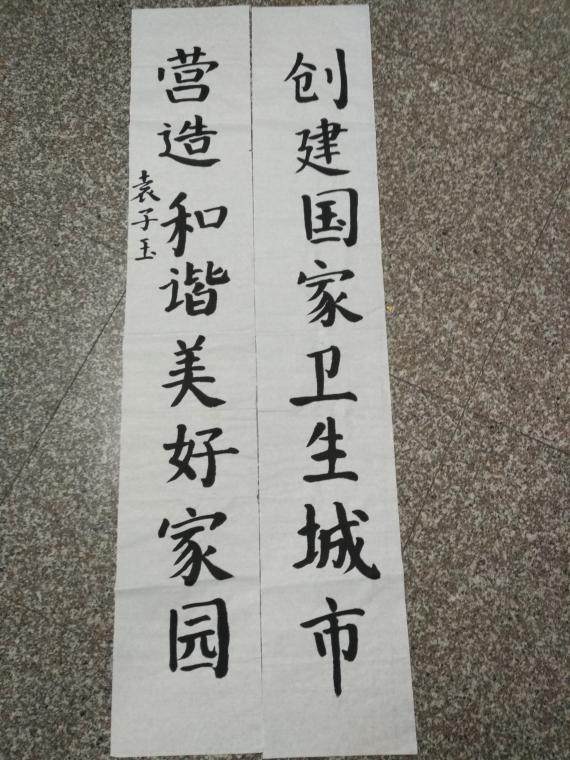 创建国家卫生城市
营造和谐美好家园
袁子玉